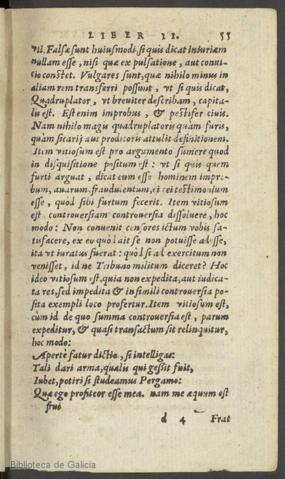 LIBER II. 55
vti. Falsæ sunt huiusmodi, si quis dicat iniuriam
nullam esse, nisi quæ ex pulsatione, aut conui-
tio constet. Vulgares sunt, quæ nihilo minus in
aliam rem transferri possunt, vt si quis dicat,
Quadruplator, vt breuiter describam, capita-
lis est. Est enim improbus, & pestifer ciuis.
Nam nihilo magis quadruplatoris quàm furis,
quàm sicarij aut proditoris attulit definitionem.
Item vitiosum est pro argumento sumere quod
in disquisitione positum est: vt si quis quem
furti arguat, dicat eum esse hominem impro-
bum, auarum, fraudulentum, ei rei testimonium
esse, quod sibi furtum fecerit. Item vitiosum
est, controuersiam controuersia dissoluere, hoc
modo: Non conuenit censores istum vobis sa-
tisfacere, ex eo quòd ait se non potuisse adesse,
ita vt iuratus fuerat: quòd si ad exercitum non
venisset, id ne Tribuno militum diceret? Hoc
ideo vitiosum est, quia non expedita, aut iudica-
ta res, sed impedita & in simili controuersia po-
sita exempli loco profertur. Item vitiosum est,
cùm id de quo summa controuersia est, parum
expeditur, & quasi transactum sit relinquitur,
hoc modo:
Apertè fatur dictio, si intelligas:
Tali dari arma, qualis qui gessit fuit,
Iubet, potiri si studeamus Pergamo:
Quæ ego profiteor esse mea, nam me æquum est
frui
d 4 Frat
Biblioteca de Galicia